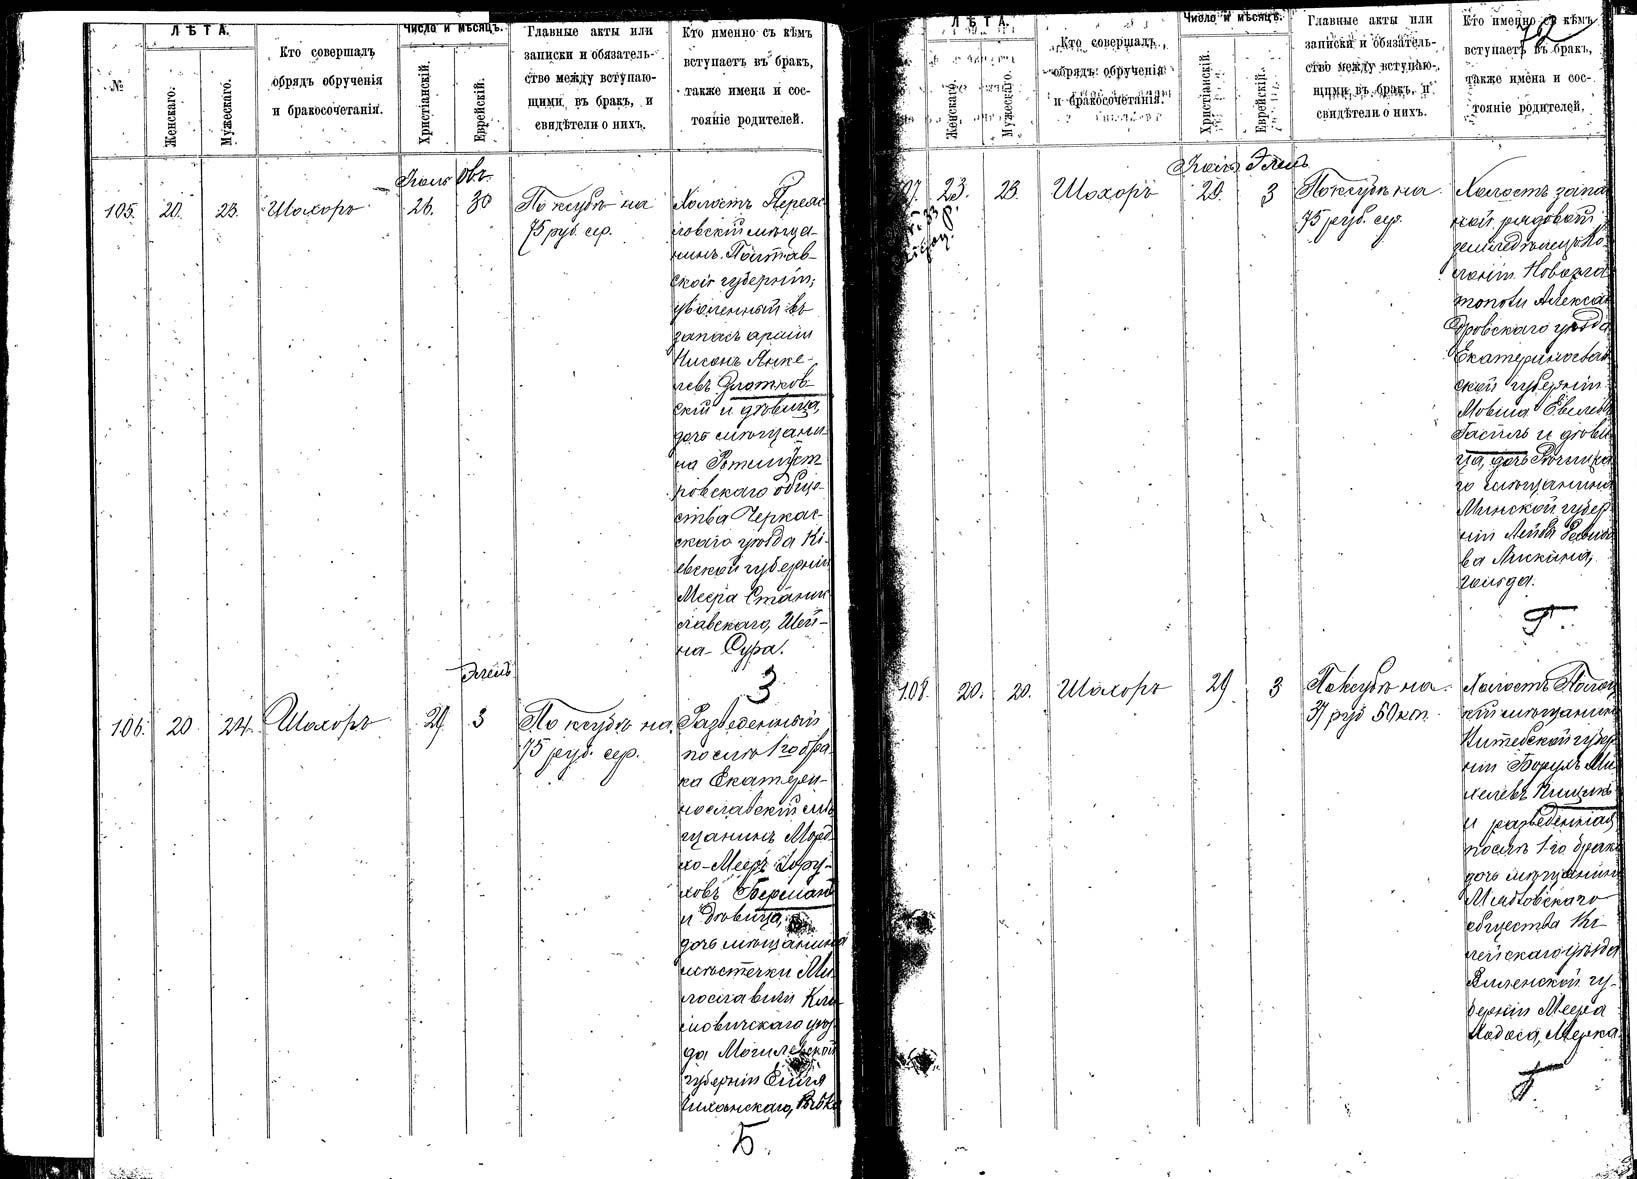 №
ЛѢТА.
Женскаго.
Мужескаго.
Кто совершалъ
обрядъ обрученія
и бракосочетанія.
Число и мѣсяцъ.
Христіанскій.
Еврейскій.
Главные акты или
записки и обязатель-
ство между вступаю-
щими въ бракъ, и
свидѣтели о нихъ.
Кто именно съ кѣмъ
вступаетъ въ бракъ,
также имена и сос-
тояніе родителей.
Іюль Овъ
105. 20. 23. Шохоръ 26. 30
По ксубѣ на
75 руб. сер.
Холостъ Переяс
ловскій мѣща-
нинъ Полтав-
ской губерніи,
уволенный въ
запасъ арміи
Нисонъ Янке-
левъ Злотков-
скій и дѣвица,
дочь мѣщани-
на Ротмист
ровскаго обще-
ства Черкас-
скаго уѣзда Кі-
евской губерніи
Меера Станис
лавскаго, Шей-
на-Сура.
З
Элелъ
106. 20 24. Шохоръ 29 3
По ксубѣ на
75 руб. сер.
Разведенный
послѣ 1го бра
ка Екатери-
нославскій мѣ
щанинъ Морд
хо-Мееръ Бору-
ховъ Берманъ
и дѣвица,
дочь мѣщанина
мѣстечки Ми
лославичи Кли-
мовичскаго уѣз
да Могилевской
губерніи
Б
ЛѢТА.
Женскаго.
Мужескаго.
Кто совершалъ
обрядъ обрученія
и бракосочетанія.
Число и мѣсяцъ.
Христіанскій.
Еврейскій.
Главные акты или
записки и обязатель-
ство между вступаю-
щими въ бракъ, и
свидѣтели о нихъ.
72
Кто именно съ кѣмъ
вступаетъ въ бракъ,
также имена и сос-
тояніе родителей.
Іюль Элелъ
107. 23. 23. Шохоръ 29. 3
По ксубѣ на
75 руб. сер.
Холостъ запа
ской рядовой
земледѣлецъ Ко
лоніи Новозла
тополи Алексан
дровскаго уѣзда
Екатеринослав
ской губерніи
Мовша Евелевъ
Гаспль и дѣви
ца, дочь Рѣчицка
го мѣщанина
Минской губер
ніи Лейба
ва Лискина,
Голда.
Г.
108. 20. 20. Шохоръ 29 3
По ксубѣ на
37 руб 50 коп.
Холостъ Полоц
кій мѣщанинъ
Витебской губер
ніи Борухъ Ми
хелевъ
и разведенная
послѣ 1го брака
дочь мѣщанина
общества Ви
лейскаго уѣзда
Виленской гу-
берніи Меера
Ходоса, Мерка.